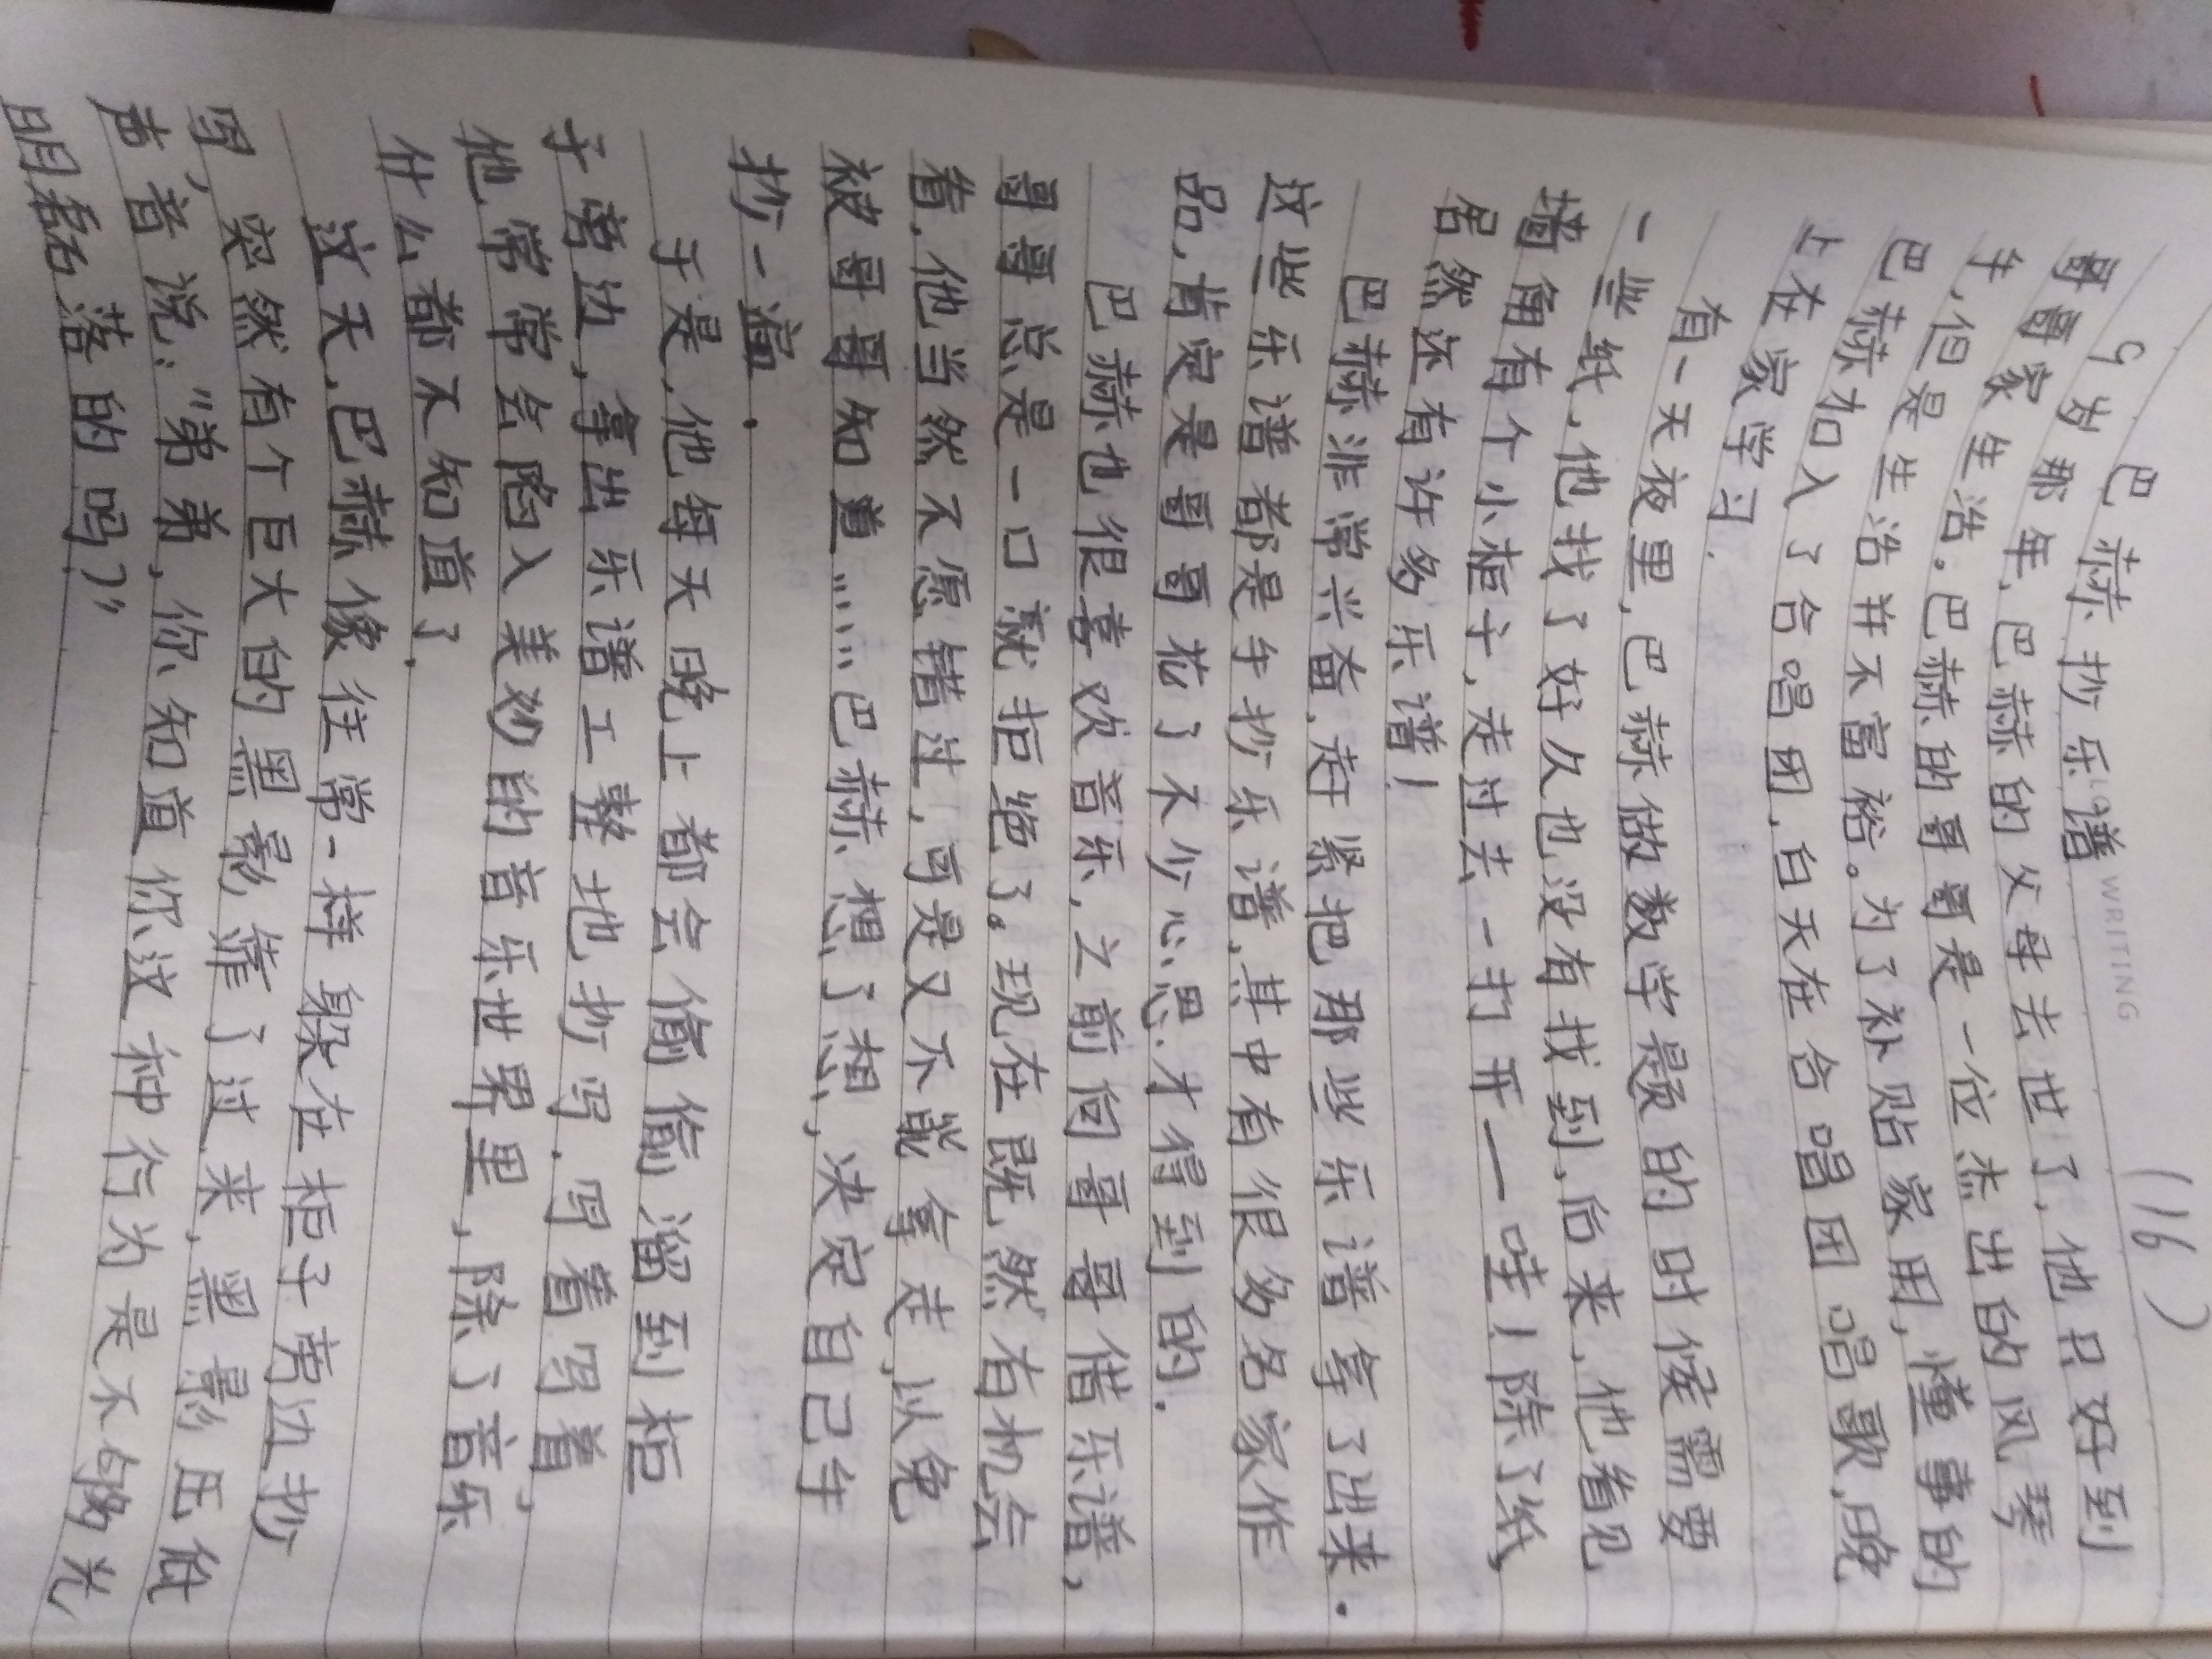 巴赫抄乐谱 (116)
WRITING
9岁那年,巴赫的父母去世了,他只好到
哥哥家生活。巴赫的哥哥是一位杰出的风琴
手,但是生活并不富裕。为了补贴家用,懂事的
巴赫加入了合唱团,白天在合唱团唱歌,晚
上在家学习.
有一天夜里,巴赫做数学题的时候需要
一些纸,他找了好久也没有找到,后来,他看见
墙角有个小柜子,走过去一打开——哇!除了纸,
居然还有许多乐谱!
巴赫非常兴奋,赶紧把那些乐谱拿了出来.
这些乐谱都是手抄乐谱,其中有很多名家作
品,肯定是哥哥花了不少心思才得到的.
巴赫也很喜欢音乐,之前向哥哥借乐谱,
哥哥总是一口就拒绝了。现在既然有机会
看,他当然不愿错过,可是又不能拿走,以免
被哥哥知道……巴赫想了想,决定自己手
抄一遍.
于是,他每天晚上都会偷偷溜到柜
子旁边,拿出乐谱工整地抄写.写着写着,
他常常会陷入美妙的音乐世界里,除了音乐
什么都不知道了.
这天,巴赫像往常一样躲在柜子旁边抄
写,突然有个巨大的黑影靠了过来,黑影压低
声音说:"弟弟,你知道你这种行为是不够光
明磊落的吗?"